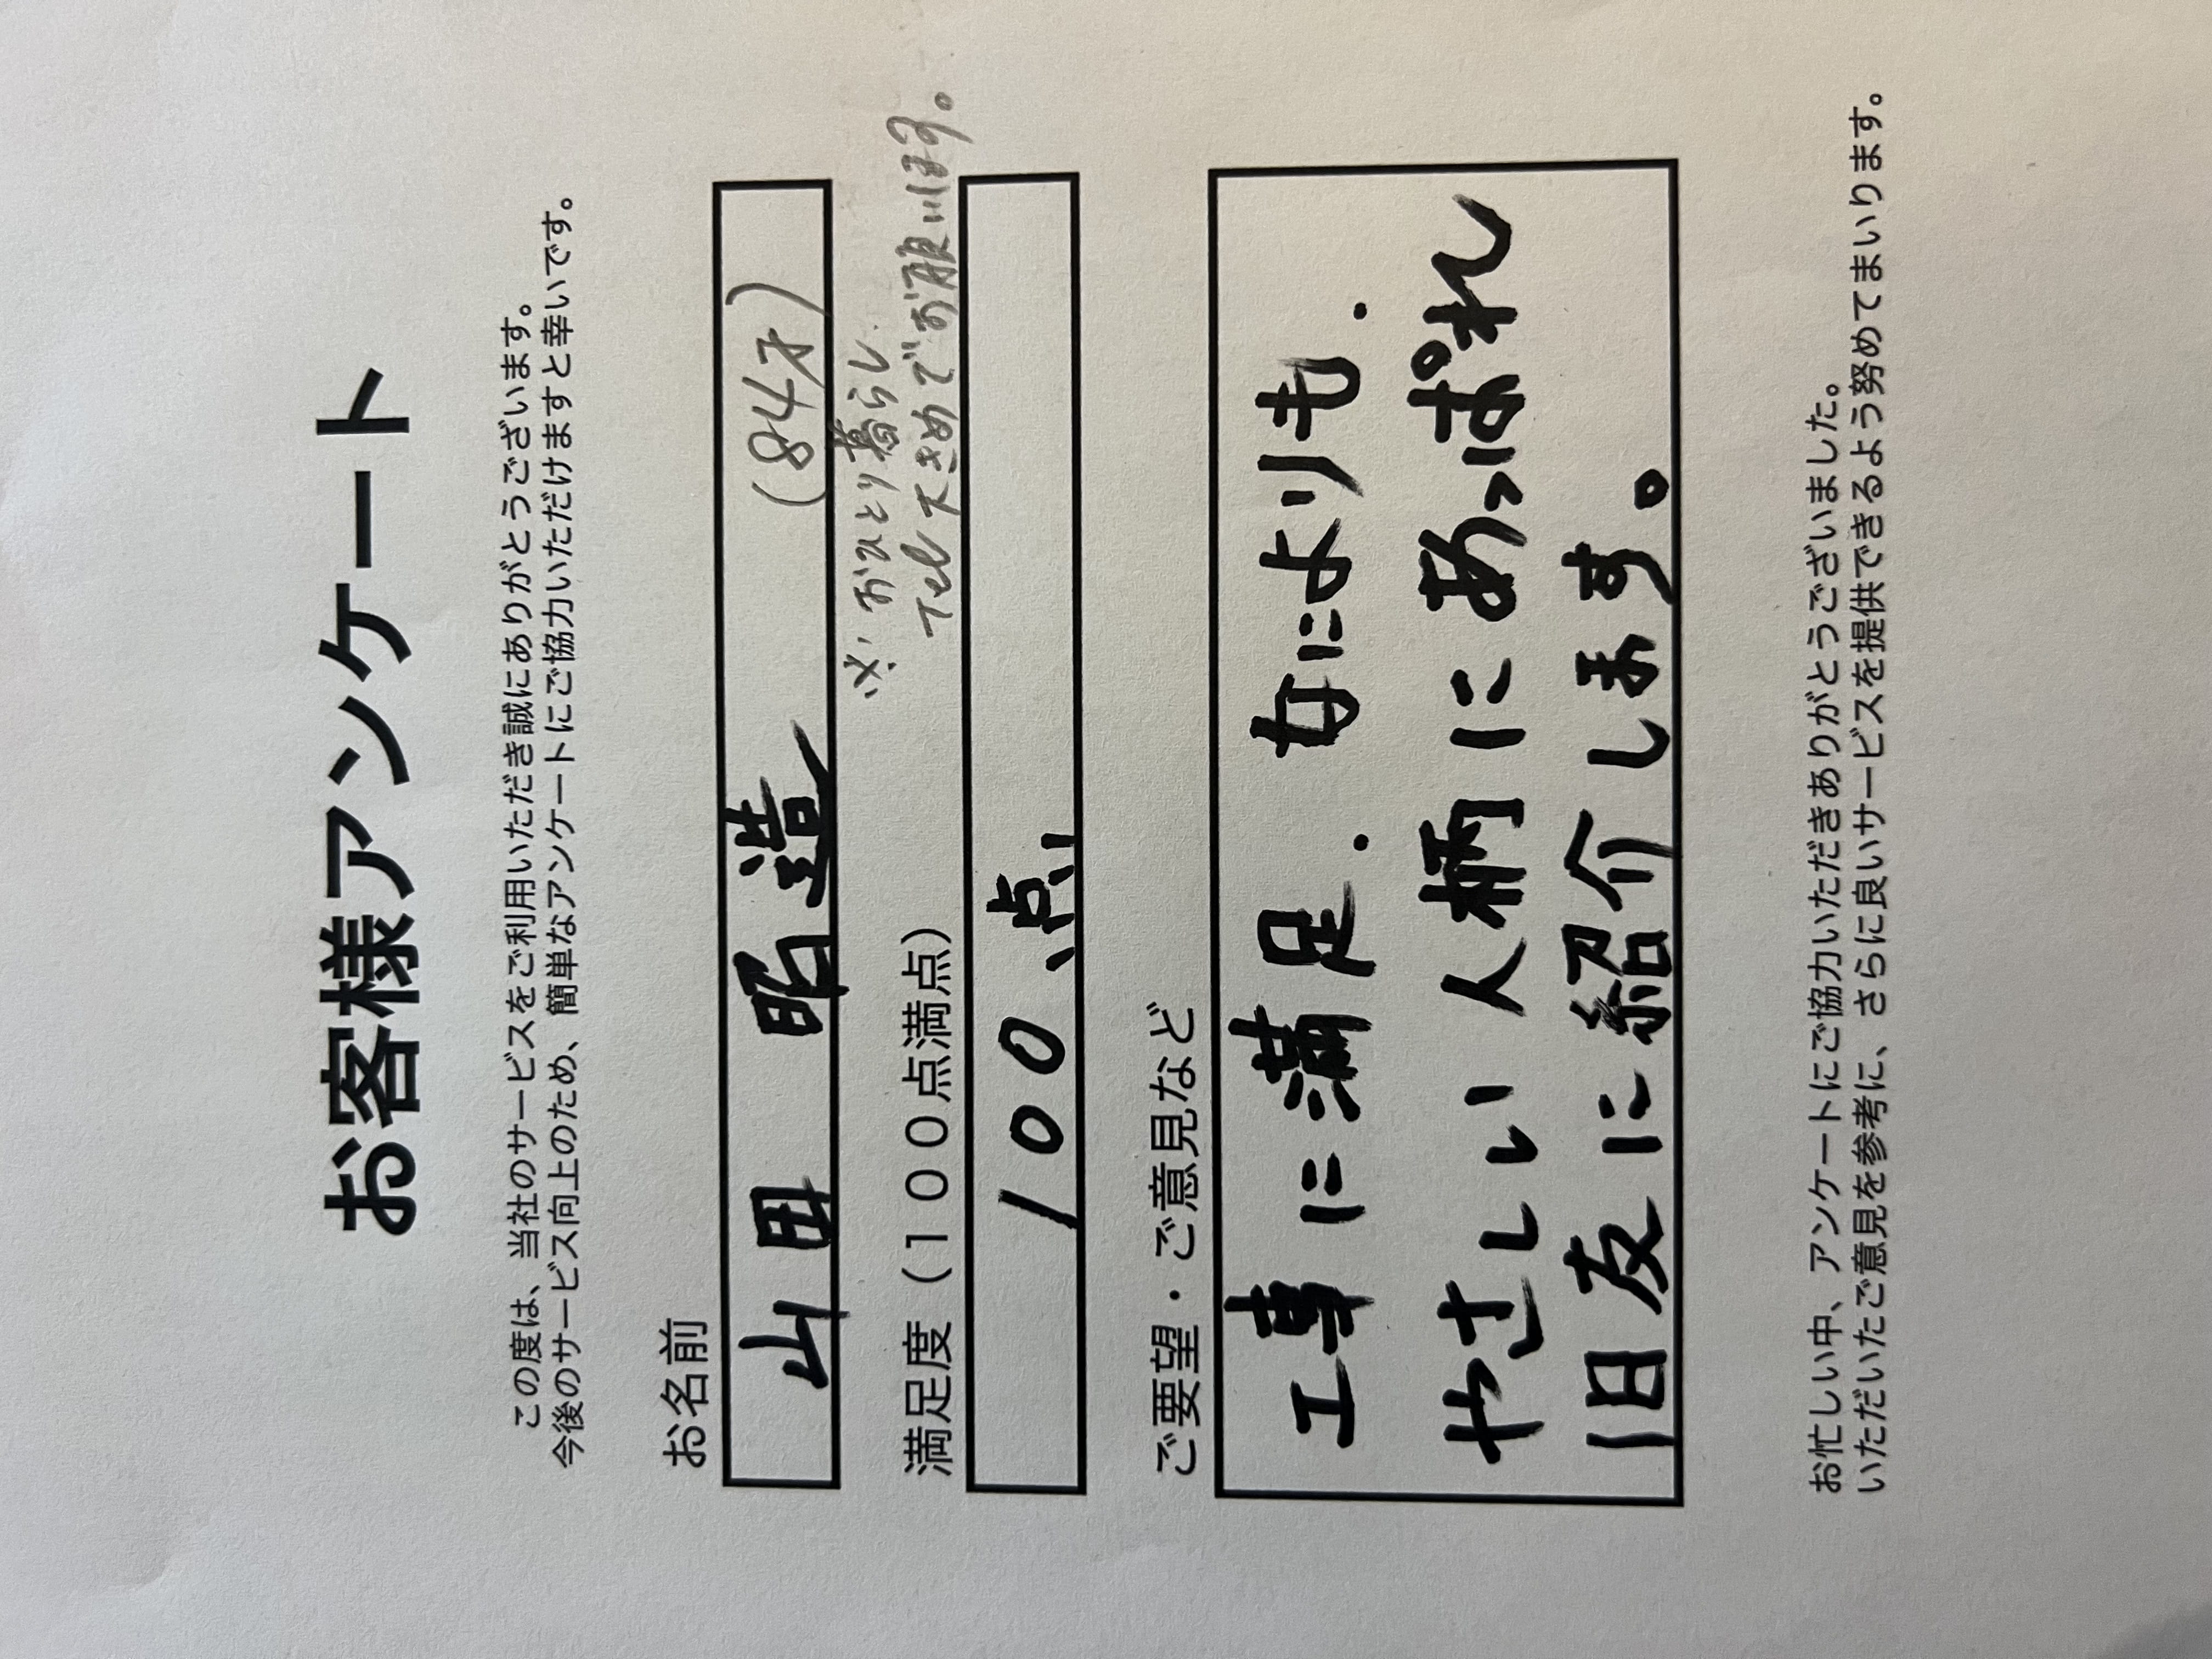 お客様アンケート
この度は、当社のサービスをご利用いただき誠にありがとうございます。
今後のサービス向上のため、簡単なアンケートにご協力いただけますと幸いです。
お名前
山田 昭造 (84才)
※おひとり暮らし
Tel 大きめでお願いします。
満足度（１００点満点）
100点
ご要望・ご意見など
工事に満足. なによりも.
やさしい人柄にあっぱれ
旧友に紹介します。
お忙しい中、アンケートにご協力いただきありがとうございました。
いただいたご意見を参考に、さらに良いサービスを提供できるよう努めてまいります。